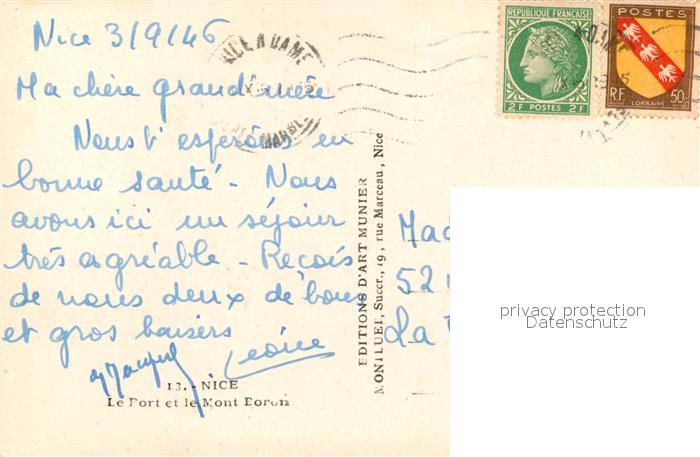 Nice 3/9/46
Ma chère grandimère
Nous t'espérons en
bonne santé - Nous
avons ici un séjour
très agréable - Reçois
de nous deux de bons
et gros baisers
13. - NICE
Le Port et le Mont Boron
EDITIONS D'ART MUNIER
MONILUEI, Succr., 19, rue Marceau, Nice
NICE
REPUBLIQUE FRANÇAISE
2F POSTES 2F
POSTES
R.F. LORRAINE 50c
Mad
52
La
privacy protection
Datenschutz